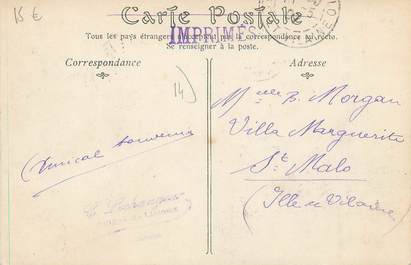 15 €
Carte Postale
Tous les pays étrangers n'acceptent pas la correspondance au recto.
Se renseigner à la poste.
IMPRIMÉS
Correspondance
Adresse
14
Melle B. Morgan
Villa Marguerite
St Malo
(Ille et Vilaine)
Amical souvenir